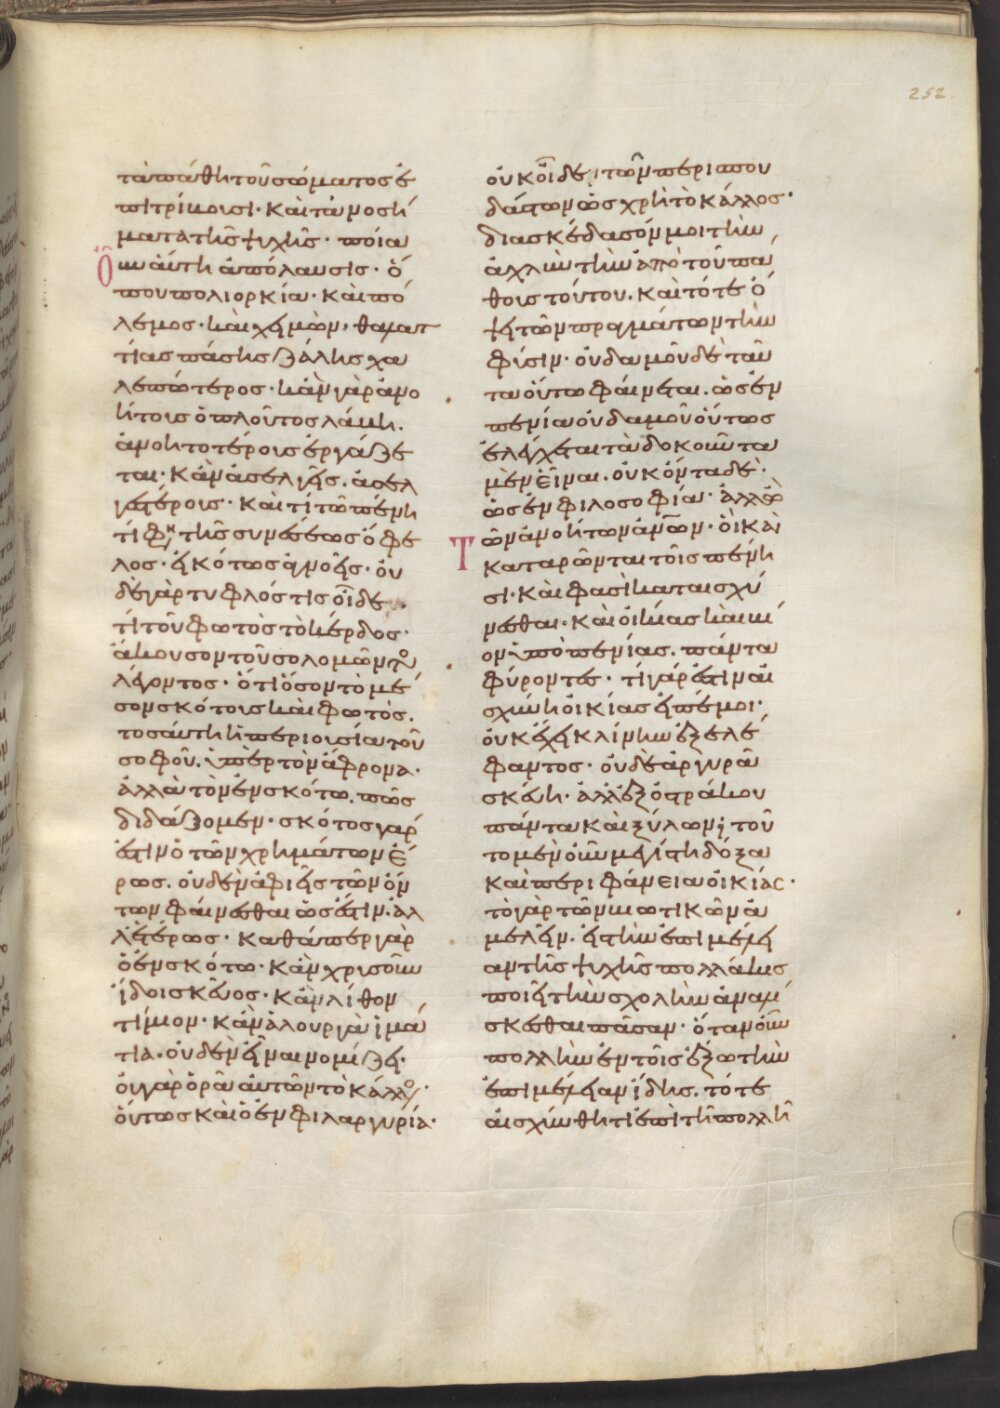 252
τὰ πάθη τοῦ σώματος ἐ
πιτρίβουσι· καὶ τὰ νοσή
ματα τῆς ψυχῆς· ποία
οὖν αὕτη ἀπόλαυσις· ὅ
που πολιορκία· καὶ πό
λεμος· καὶ χειμὼν,
τίας πάσης ζάλης χα
λεπώτερος· κἂν γὰρ ἀνο
ήτοις ὁ πλοῦτος λάβη.
ἀνοητοτέροις ἐργάζε
ται· κἂν ἀσελγεῖς. ἀσελ
γεστέροις· καὶ τί τῶ πένη
τί φη τῆς συνέσεως ὄφε
λος· εἰκότως ἀγνοεῖς· οὐ
δὲ γὰρ τυφλός τις οἶδε
τί τοῦ φωτὸς τὸ κέρδος·
ἄκουσον τοῦ σολομῶντο
λέγοντος· ὅτι ὅσον τὸ μέ
σον σκότους καὶ φωτὸς.
τοσαύτη ἡ περιουσία τοῦ
σοφοῦ. ὑπὲρ τὸν ἄφρονα·
ἀλλὰ τὸν ἐν σκότω. πῶς
διδάξομεν· σκότος γάρ
ἐστιν ὁ τῶν χρημάτων ἔ
ρως. οὐδὲν ἀφιεὶς τῶν ὄν
των φαίνεσθαι ὡς ἐστιν. ἀλ
λ' ἑτέρως· καθάπερ γὰρ
ὁ ἐν σκότω· κἂν χρυσοῦν
ἴδοι σκεῦος· κἂν λίθον
τίμιον· κἂν ἁλουργὰ ἱμά
τια. οὐδὲν εἶναι νομίζει·
οὐ γὰρ ὁρᾶ αὐτῶν τὸ κάλλο·
οὕτως καὶ ὁ ἐν φιλαργυρία·
οὐκ οἶδε τῶν περισπου
δάστων ὡς χρὴ τὸ κάλλος·
διασκέδασόν μοι τὴν
ἀχλὺν τὴν ἀπὸ τοῦ πά
θους τούτου. καὶ τότε ὄ
ψει τῶν πραγμάτων τὴν
φύσιν· οὐδαμοῦ δὲ ταῦ
τα οὕτω φαίνεται. ὡς ἐν
πενία οὐδαμοῦ οὕτως
ἐλέγχεται τὰ δοκοῦντα
μὲν εἶναι. οὐκ ὄντα δὲ·
ὡς ἐν φιλοσοφία· ἀλλ' ὢ
τῶν ἀνοήτων ἀνων· οἳ καὶ
καταρῶνται τοῖς πένη
σι· καὶ φασὶ καταισχύ
νεσθαι· καὶ οἰκίας καὶ βί
ον ὑπὸ πενίας. πάντα
φύροντες· τί γάρ ἐστιν αἰ
σχύνη οἰκίας εἰπέ μοι·
οὐκ ἔχει κλίνην ἐξ ἐλέ
φαντος· οὐδὲ ἀργυρᾶ
σκεύη· ἀλλ' ἐξ ὀστράκου
πάντα καὶ ξύλων; τοῦ
το μὲν οὖν μεγίστη δόξα
καὶ περιφάνεια οἰκίας·
τὸ γὰρ τῶν βιωτικῶν ἀ
μελεῖν. εἰς τὴν ἐπιμέλει
αν τῆς ψυχῆς πολλάκις
ποιεῖ τὴν σχολὴν ἀναλί
σκεσθαι πᾶσαν· ὅταν οὖν
πολλὴν ἐν τοῖς ἔξω τὴν
ἐπιμέλειαν ἴδης. τότε
αἰσχύνθητι ἐπὶ τῆ πολλῆ